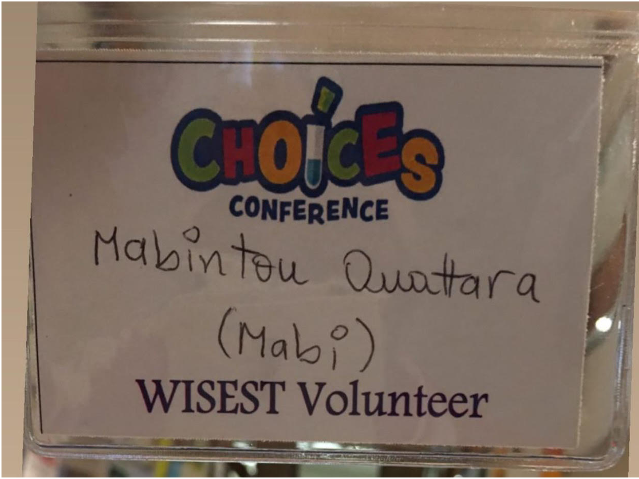 CHOiCES
CONFERENCE
Mabintou Ouattara
(Mabi)
WISEST Volunteer